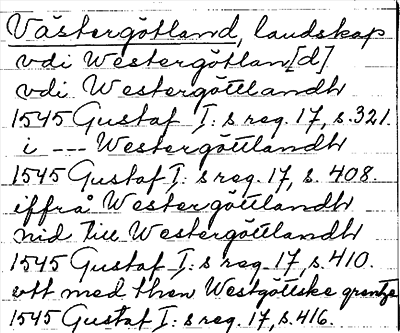 Västergötland, landskap
vdi Westergötlan[d]
vdi Westergöttlandh
1545 Gustaf I:s reg. 17, s. 321.
i --- Westergöttlandh
1545 Gustaf I:s reg. 17, s. 408.
iffrå Westergöttlandh
nid till Westergöttlandh
1545 Gustaf I:s reg. 17, s. 410.
vtt med then Westgöttske grentze
1545 Gustaf I:s reg. 17, s. 416.